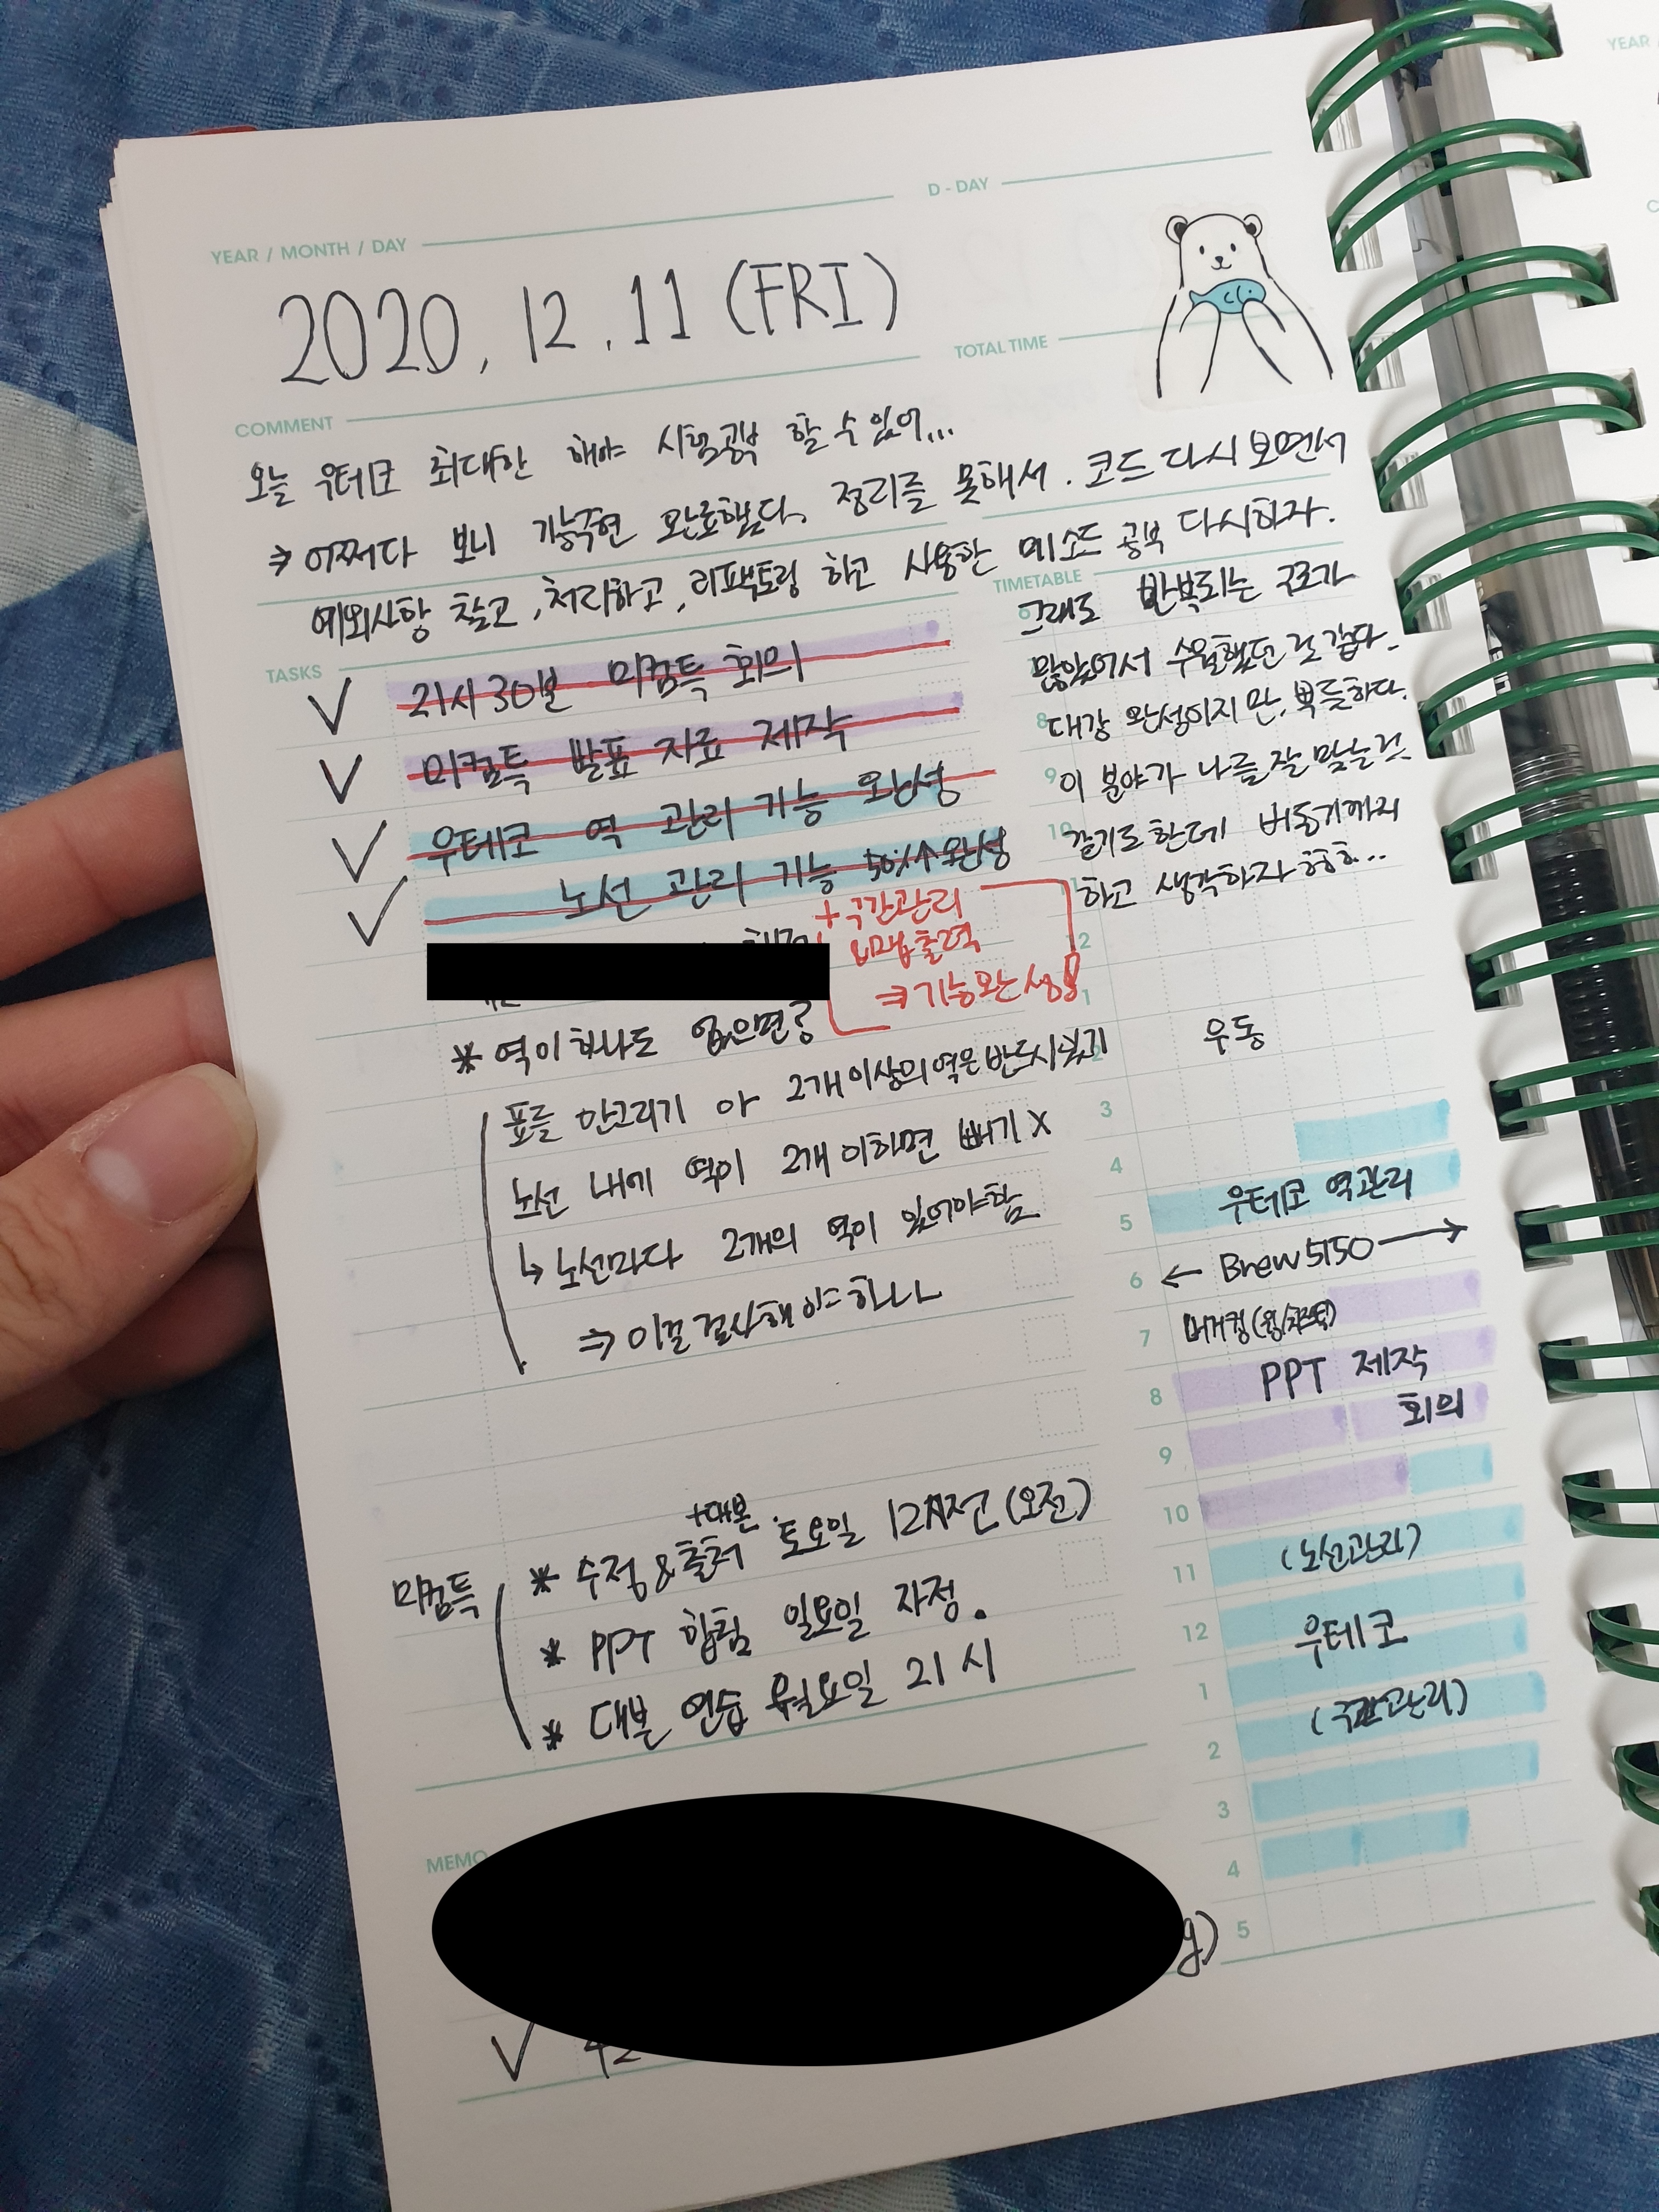 YEAR / MONTH / DAY
D - DAY
2020. 12. 11 (FRI)
TOTAL TIME
COMMENT
오늘 우테코 최대한 해야 시험공부 할 수 있어...
⇒ 어쩌다 보니 기능구현 완료했다. 정리를 못해서. 코드 다시 보면서
예외사항 찾고, 처리하고, 리팩토링 하고 사용한 메소드 공부 다시하자.
TIMETABLE
그래도 반복되는 구조가
많았어서 수월했던 것 같다.
대강 완성이지만, 뿌듯하다.
이 분야가 나를 잘 맞는건
같기도 한데 버틸기까지
하고 생각하자
TASKS
21시 30분 미컴특 회의
미컴특 발표 자료 제작
우테코 역 관리 기능 완성
노선 관리 기능 50%↑ 완성
+ 구간관리
맵출력
⇒ 기능완성!
* 역이 하나도 없으면?
표를 안그리기 아 2개 이상의 역은 반드시 있기
노선 내에 역이 2개 이하면 빼기 X
↳ 노선마다 2개의 역이 있어야함
⇒ 이걸 검사해야하나
미컴특
+대본
* 수정 & 출처 토요일 12시전 (오전)
* PPT 합침 일요일 자정.
* 대본 연습 월요일 21시
MEMO
8
9
10
12
1
2
우동
3
4
우테코 역관리
5
← Brew 5150 →
6
버거킹
7
PPT 제작
8
회의
9
10
(노선관리)
11
12
우테코
1
(구간관리)
2
3
4
g)
5
YEAR